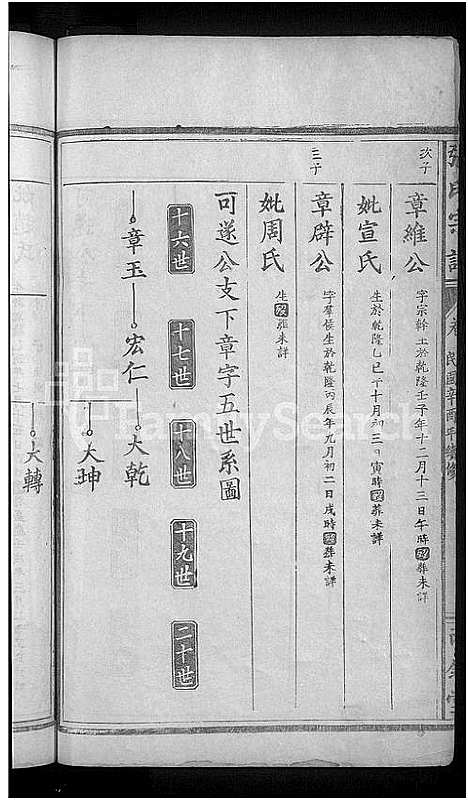 張氏宗譜
民國辛酉年續修
次子
章維公
字宗幹生於乾隆壬子年十二月十三日午時歿葬未詳
妣宣氏
生於乾隆乙巳年十月初三日寅時歿葬未詳
三子
章辟公
字羣侯生於乾隆丙辰年九月初二日戌時歿葬未詳
妣周氏
生歿葬未詳
可遂公支下章字五世系圖
十六世
十七世
十八世
十九世
二十世
章玉
宏仁
大乾
大坤
大轉
FamilySearch